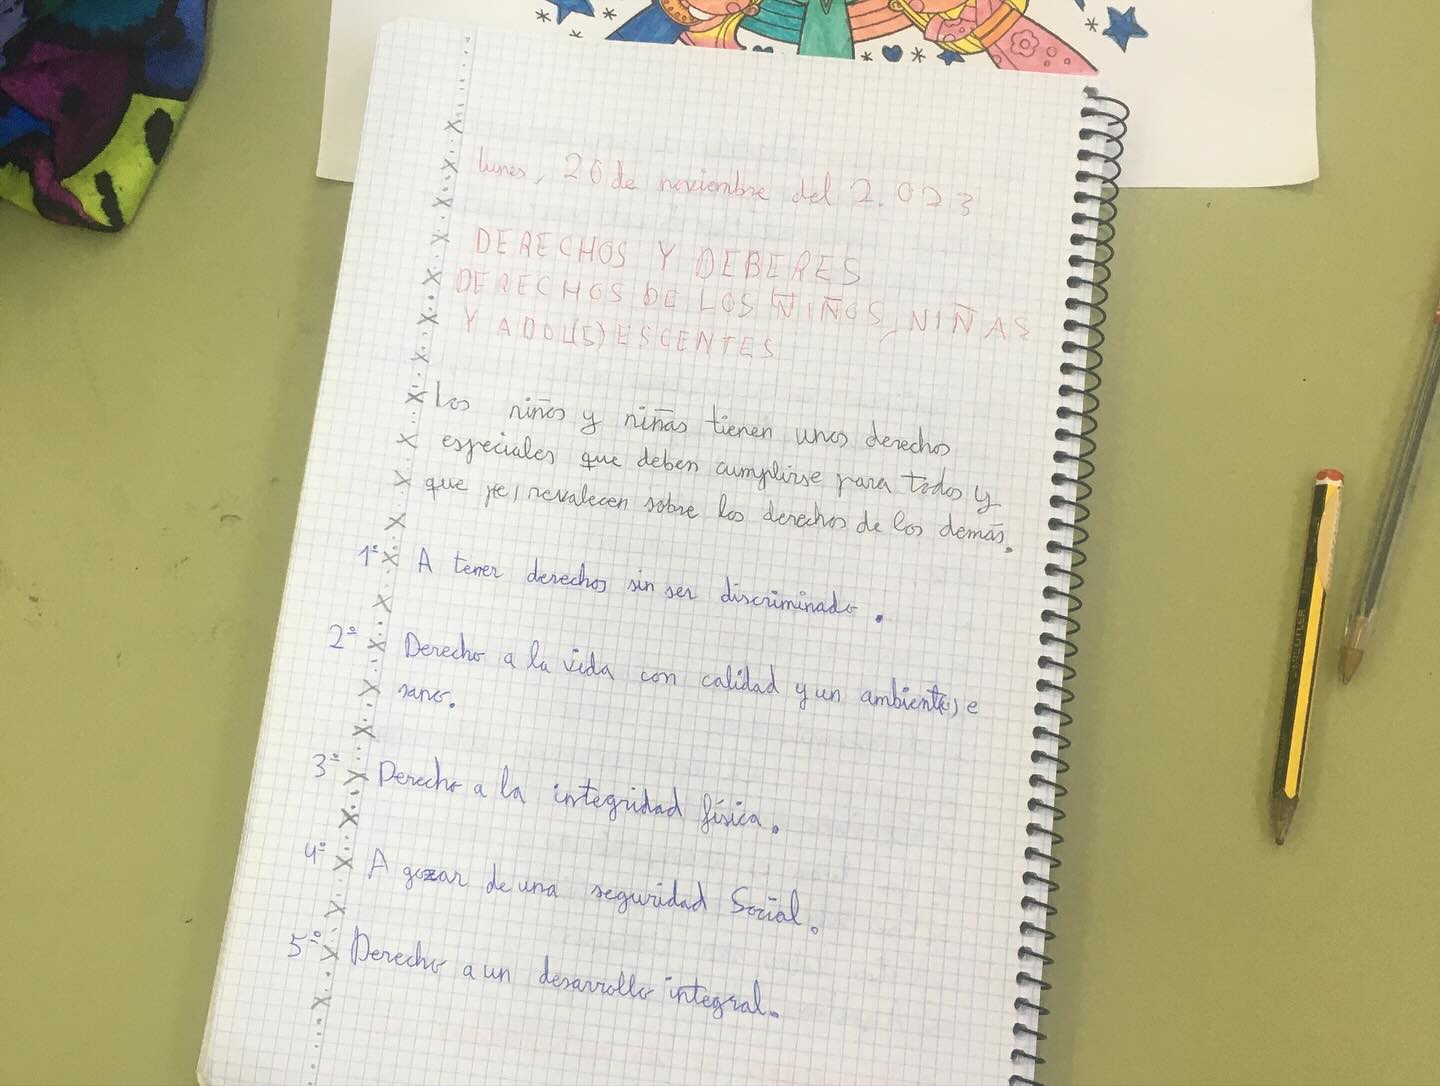 lunes, 20 de noviembre del 2.023
DERECHOS Y DEBERES
DERECHOS DE LOS NIÑOS, NIÑAS
Y ADOL(S)ESCENTES
Los niños y niñas tienen unos derechos
especiales que deben cumplirse para todos y
que pe,revalecen sobre los derechos de los demás.
1º A tener derechos sin ser discriminado.
2º Derecho a la vida con calidad y un ambient(e)e
sano.
3º Derecho a la integridad física.
4º A gozar de una seguridad Social.
5º Derecho a un desarrollo integral.